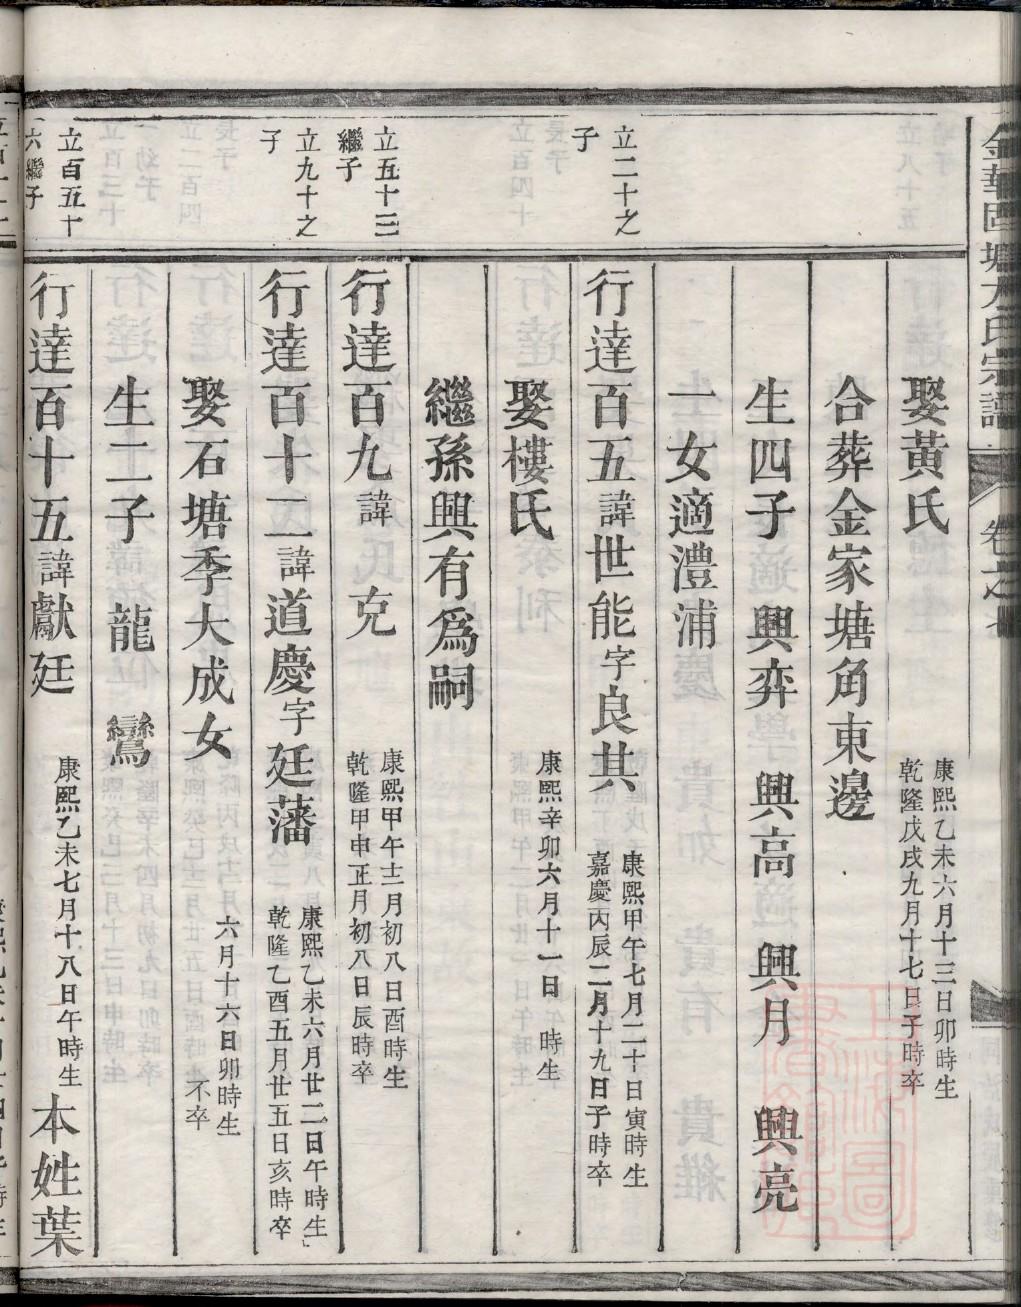 娶黃氏
康熙乙未六月十三日卯時生
乾隆戊戌九月十七日子時卒
合葬金家塘角東邊
生四子 興弈 興高 興月 興亮
一女適澧浦
立二十之
子
行達百五諱世能字良其
康熙甲午七月二十日寅時生
嘉慶丙辰二月十九日子時卒
娶樓氏
康熙辛卯六月十一日 時生
繼孫興有爲嗣
立五十三
繼子
行達百九諱 克
康熙甲午十二月初八日酉時生
乾隆甲申正月初八日辰時卒
立九十之
子
行達百十一諱道慶字廷藩
康熙乙未六月廿二日午時生
乾隆乙酉五月廿五日亥時卒
娶石塘季大成女
六月十六日卯時生
不卒
生二子 龍 鸞
立百五十
六繼子
行達百十五諱獻廷
康熙乙未七月十八日午時生
本姓葉